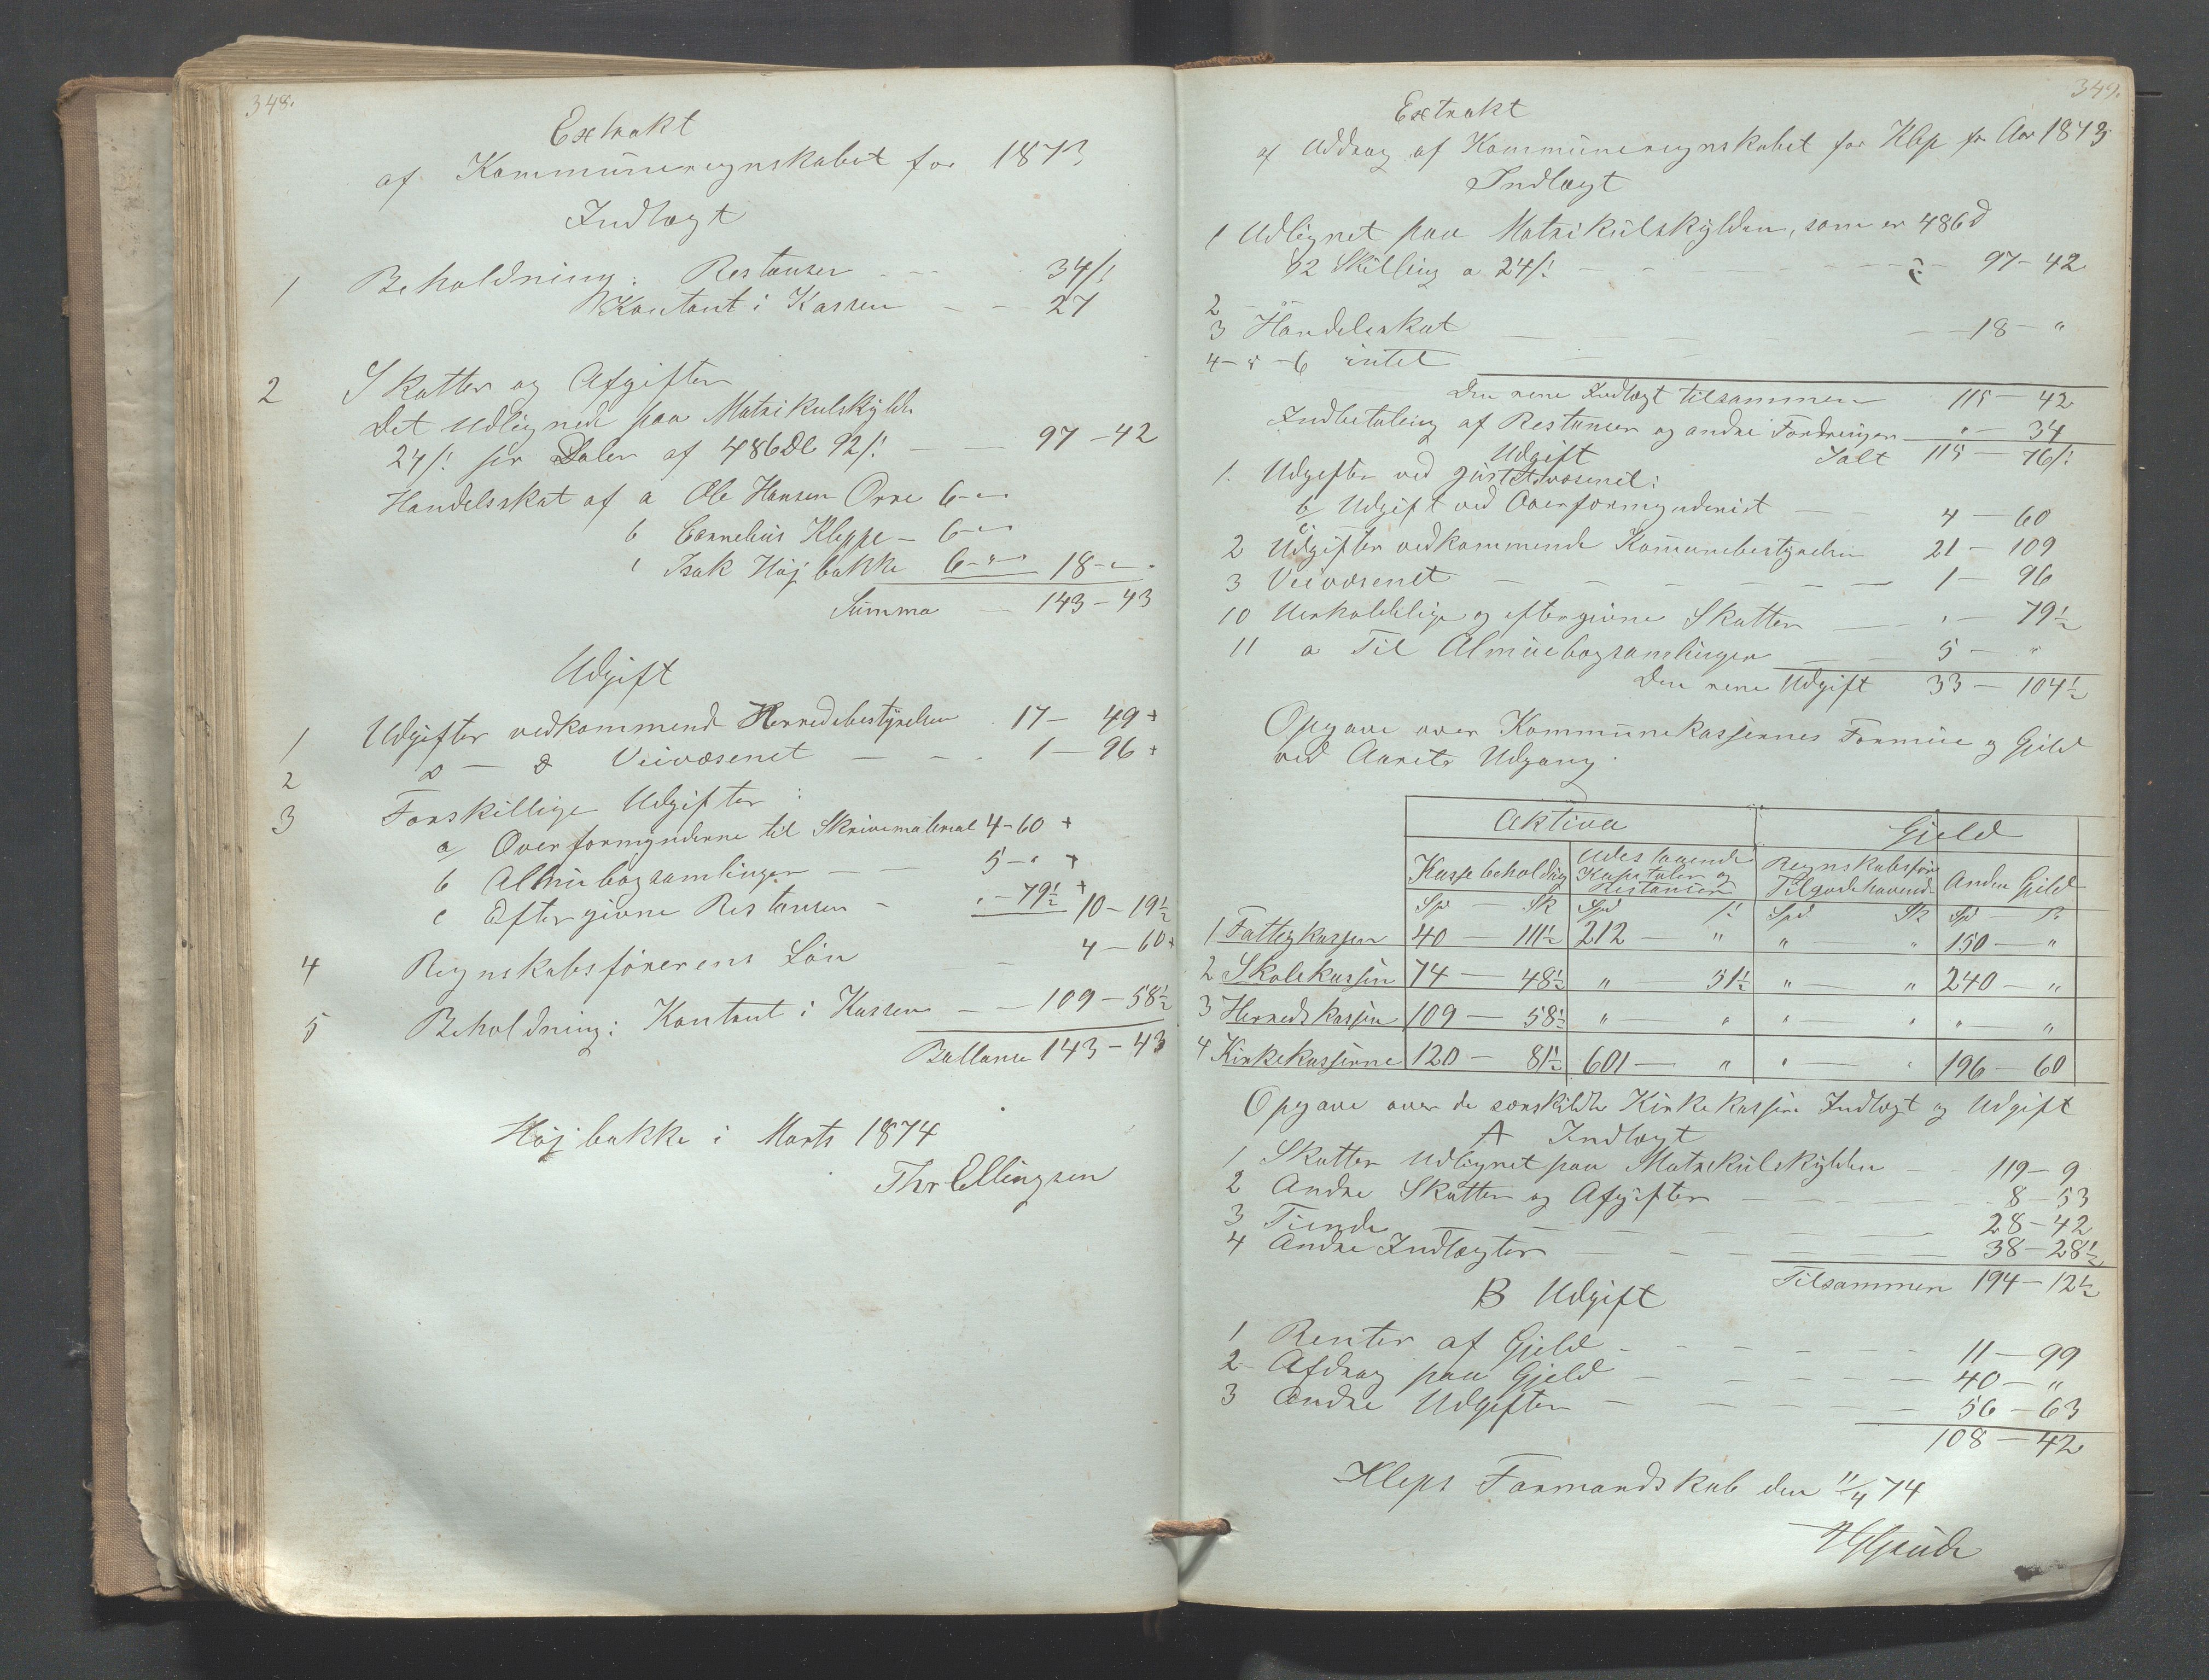 348.
Extrakt
af Kommuneregnskabet for 1873
Indtægt
1 Beholdning: Restanser - - 34/:
Kontant i Kassen - - 27
2 Skatter og Afgifter
Det udlignede paa Matrikulskylden
24/: pr Daler af 486Dl 92/: - - 97 - 42
Handelsskat af a Ole Hansen Orre 6 - "
b Cornelius Kleppe - 6 - "
c Isak Højbakke 6 - " 18 - "
Summa - 143 - 43
Udgift
1 Udgifter vedkommende Herredsbestyrelsen 17 - 49 +
2 do - do Veivæsenet - - 1 - 96 +
3 Forskillige Udgifter:
a/ Overformynderne til Skrivematerial 4 - 60 +
b Almuebogsamlingen - - 5 - " +
c Eftergivne Restanser - " - 79½ + 10 - 19½
4 Regnskabsførerens Løn - 4 - 60 +
5 Beholdning: Kontant i Kassen - - 109 - 58½
Ballanse 143 - 43
Højbakke i Marts 1874
Thr Ellingsen
349.
Extrakt
af Uddrag af Kommuneregnskabet for Klep for Aar 1873
Indtægt
1 Udlignet paa Matrikulskylden, som er 486 d
92 Skilling a 24/: - - - - 97 - 42
2 - "
3 Handelsskat - - - - 18 - "
4 - 5 - 6 intet
Den rene Indtægt tilsammen 115 - 42
Indbetaling af Restanser og andre Fordringer " - 34
Udgift Ialt 115 - 76/:
1. Udgifter ved Justitsvæsenet:
b/ Udgift ved Overformynderiet - - 4 - 60
2 Udgifter vedkommende Kommunebestyrelsen 21 - 109
3 Veivæsenet - - - - - 1 - 96
10 Uerholdelige og eftergivne Skatter - - " - 79½
11 a Til Almuebogsamlingen - - 5 - "
Den rene Udgift 33 - 104½
Opgave over Kommunekassernes Formue og Gjeld
ved Aarets Udgang.
Aktiva Gjeld
Kassebeholdng Udestaaende Kapitaler og Restanser Regnskabsføre Tilgodehavend. Anden Gjeld
Spd - Sk Spd /: Spd. Sk Spd - ß
1 Fattigkassen 40 - 111½ 212 - " " - " 150 - "
2 Skolekassen 74 - 48½ " - 51½ " - " 240 - "
3 Herredskassen 109 - 58½ " - " " - " " - "
4 Kirkekasserne 120 - 81½ 601 - " " - " 196 - 60
Opgave over de særskildte Kirkekassers Indtægt og Udgift
A Indtægt
1 Skatter udlignet paa Matrikulskylden - 119 - 9
2 Andre Skatter og Afgifter - - - 8 - 53
3 Tiende - - - - - 28 - 42
4 Andre Indtægter - - - 38 - 28½
Tilsammen 194 - 12½
B Udgift
1 Renter af Gjeld - - - - 11 - 99
2 Afdrag paa Gjeld - - - - 40 - "
3 Andre Udgifter - - - - 56 - 63
108 - 42
Kleps Formandskab den 11/4 74